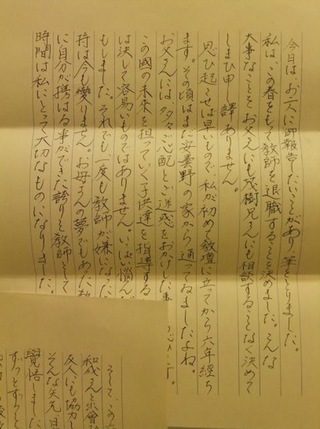 今日はお二人に御報告したいことがあり筆をとりました。
私はこの春をもって教師を退職することを決めました。そんな
大事なことをお父さんにも茂樹兄さんにも相談することなく決めて
しまひ申し訳ありません。
思ひ起こせば早いもので、私が初めて教壇に立ってから六年経ち
ます。その頃はまだ安曇野の家から通ってゐましたよね。
お父さんには多々ご心配とご迷惑をおかけした事
この國の未来を担っていく子供達を指導する
は決して容易いものではありません。いっぱい悩ん
もしました。それでも一度も教師が嫌いになった
持は今も變りません。お母さんの夢でもあった
に自分が携はる事ができた誇りと教師として
時間は私にとって大切なものになりました。
そして、この
と出會
友人にも協力し
そんな矢先、
覺悟しました
ずっとずっと